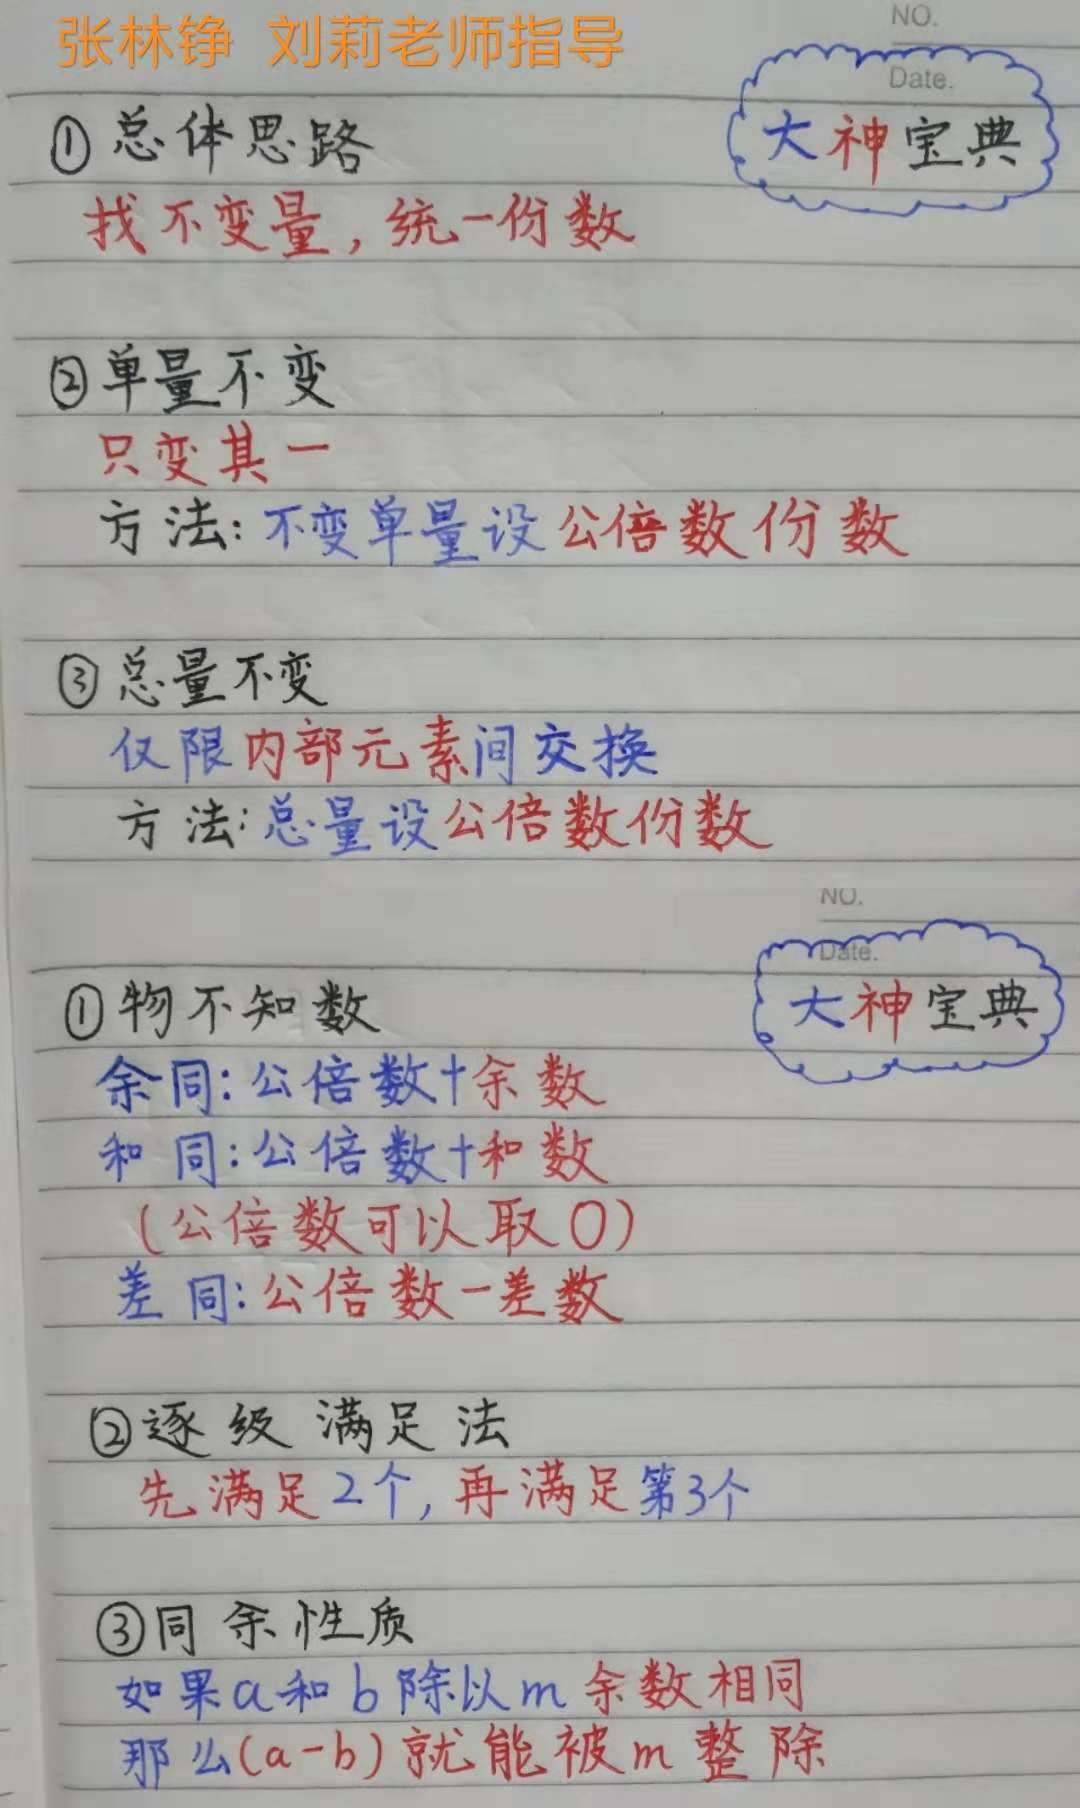 张林铮 刘莉老师指导
NO.
Date.
大神宝典
①总体思路
找不变量,统一份数
②单量不变
只变其一
方法:不变单量设公倍数份数
③总量不变
仅限内部元素间交换
方法:总量设公倍数份数
NO.
Date.
大神宝典
①物不知数
余同:公倍数+余数
和同:公倍数+和数
(公倍数可以取0)
差同:公倍数-差数
②逐级满足法
先满足2个,再满足第3个
③同余性质
如果a和b除以m余数相同
那么(a-b)就能被m整除